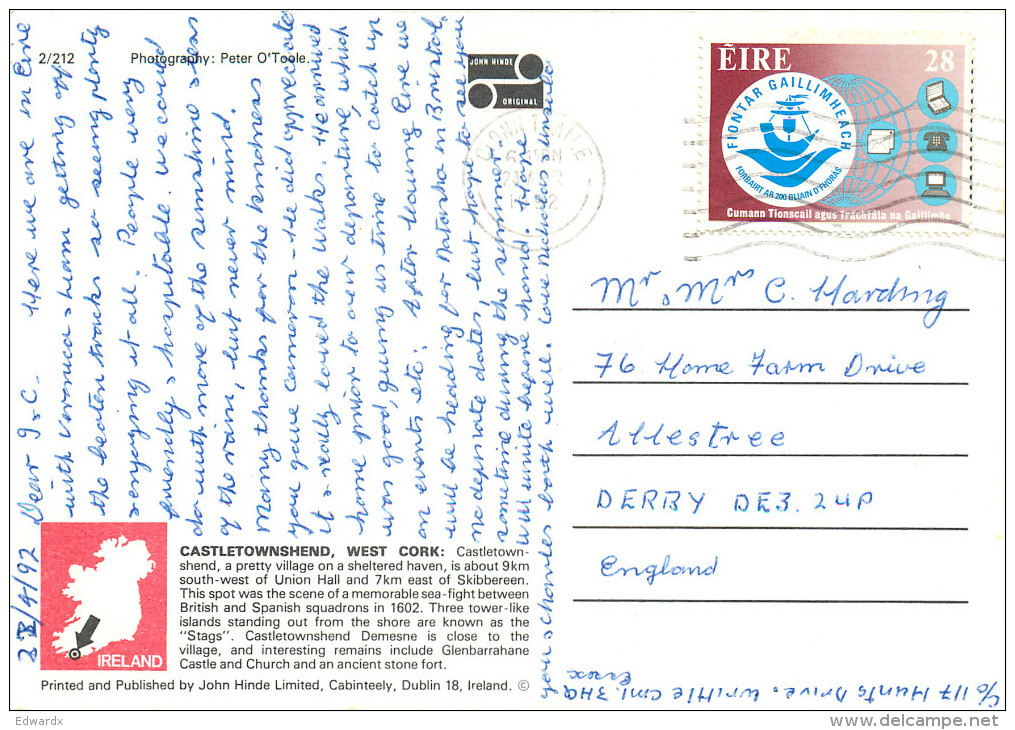 2/212
Photography: Peter O'Toole.
JOHN HINDE
ORIGINAL
ÉIRE 28
FIONTAR GAILLIMHEACH
FORBAIRT AR 200 BLIAIN D'FHORÁS
Cumann Tionscail agus Tráchtála na Gaillimhe
1992
28/4/92
Dear J & C. Here we are in Eire
with Veronica & Liam getting off
the beaten tracks & seeing plenty
& enjoying it all. People very
friendly & hospitable. We could
do with more of the sunshine & less
of the rain, but never mind.
Many thanks for the kindness
you gave Cameron - He did appreciate
it & really loved the walks. He arrived
home prior to our departure, which
was good, giving us time to catch up
on events etc. After leaving Eire we
will be heading for Natasha in Bristol.
No definite dates, but hope to see you
sometime during the summer.
Will write before hand. Hope
you & Charles both well. Love
Mr & Mrs C. Harding
76 Home Farm Drive
Allestree
DERBY DE3 2UP
England
C/o 117 Hunts Drive. Writtle CM1. 3HQ
Essex
IRELAND
CASTLETOWNSHEND, WEST CORK: Castletown-
shend, a pretty village on a sheltered haven, is about 9km
south-west of Union Hall and 7km east of Skibbereen.
This spot was the scene of a memorable sea-fight between
British and Spanish squadrons in 1602. Three tower-like
islands standing out from the shore are known as the
"Stags". Castletownshend Demesne is close to the
village, and interesting remains include Glenbarrahane
Castle and Church and an ancient stone fort.
Printed and Published by John Hinde Limited, Cabinteely, Dublin 18, Ireland. ©
Edwardx
delcampe.net